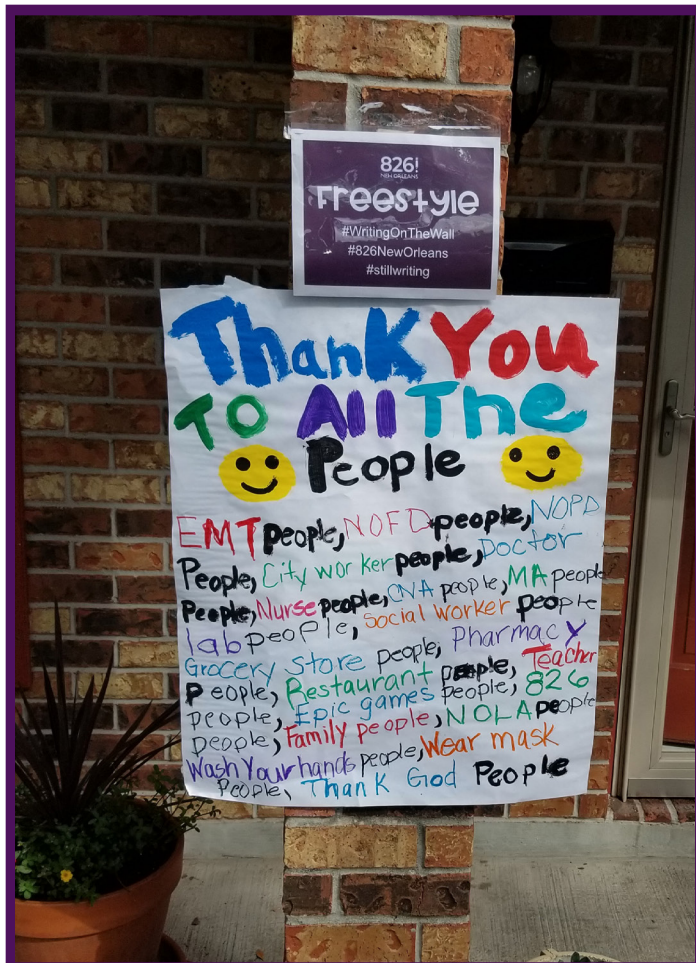 826!
NEW ORLEANS
Freestyle
#WritingOnTheWall
#826NewOrleans
#stillwriting
Thank You
To All The
People
EMT people, NOFD people, NOPD
People, City worker people, Doctor
People, Nurse people, CNA people, MA people
lab people, Social worker people
Grocery store people, Pharmacy
People, Restaurant people, Teacher
people, Epic games people, 826
people, Family people, NOLA people
Wash Your hands people, Wear mask
People, Thank God People